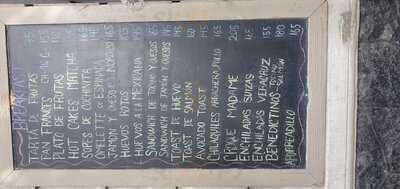 BREAKFAST
TARTA DE FRUTAS 75
PAN FRANCÉS 165
PLATO DE FRUTAS
HOT CAKES MATCHA 165
SOPES DE COCHINITA
OMELETTE DE ESPINACA
JAMON
HUEVOS ROTOS
HUEVOS A LA MEXICANA
SANDWICH DE TOCINO Y QUESO
SANDWICH DE JAMÓN Y QUESO
TOAST DE HUEVO 145
TOAST DE SALMON 160
AVOCADO TOAST 145
CHILAQUILES ARRACHERA, POLLO 165
CROQUE MADAME 205
ENCHILADAS SUIZAS 165
ENCHILADAS VERACRUZ 155
BENEDICTINOS 180
APORREADILLO 165